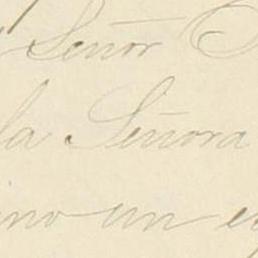 Señor
la Señora
un